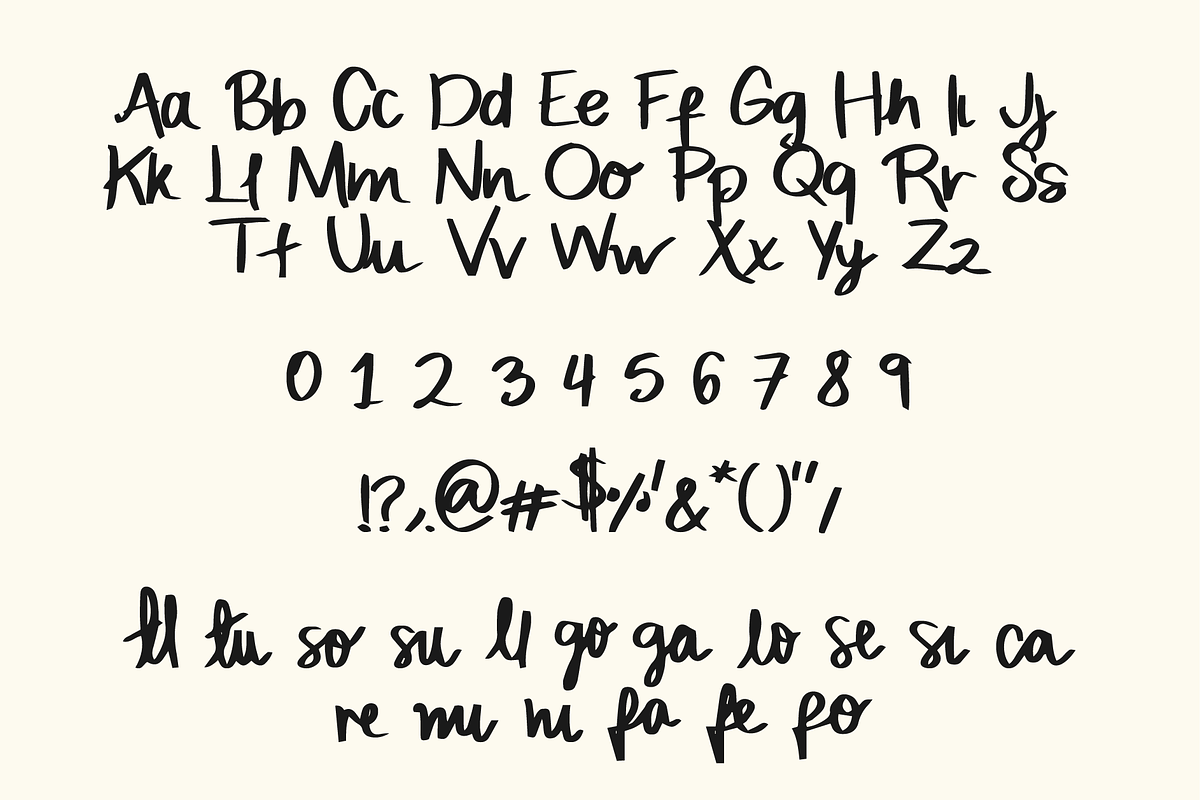 Aa Bb Cc Dd Ee Ff Gg Hh Ii Jj
Kk Ll Mm Nn Oo Pp Qq Rr Ss
Tt Uu Vv Ww Xx Yy Zz
0 1 2 3 4 5 6 7 8 9
!?,.@#$%'&*()"/
tl tu so su ll go ga lo se si ca
re mi ni fa fe fo